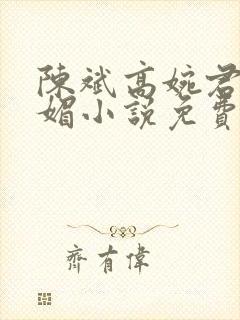 陳斌高婉君
媚小説免費
齊有偉